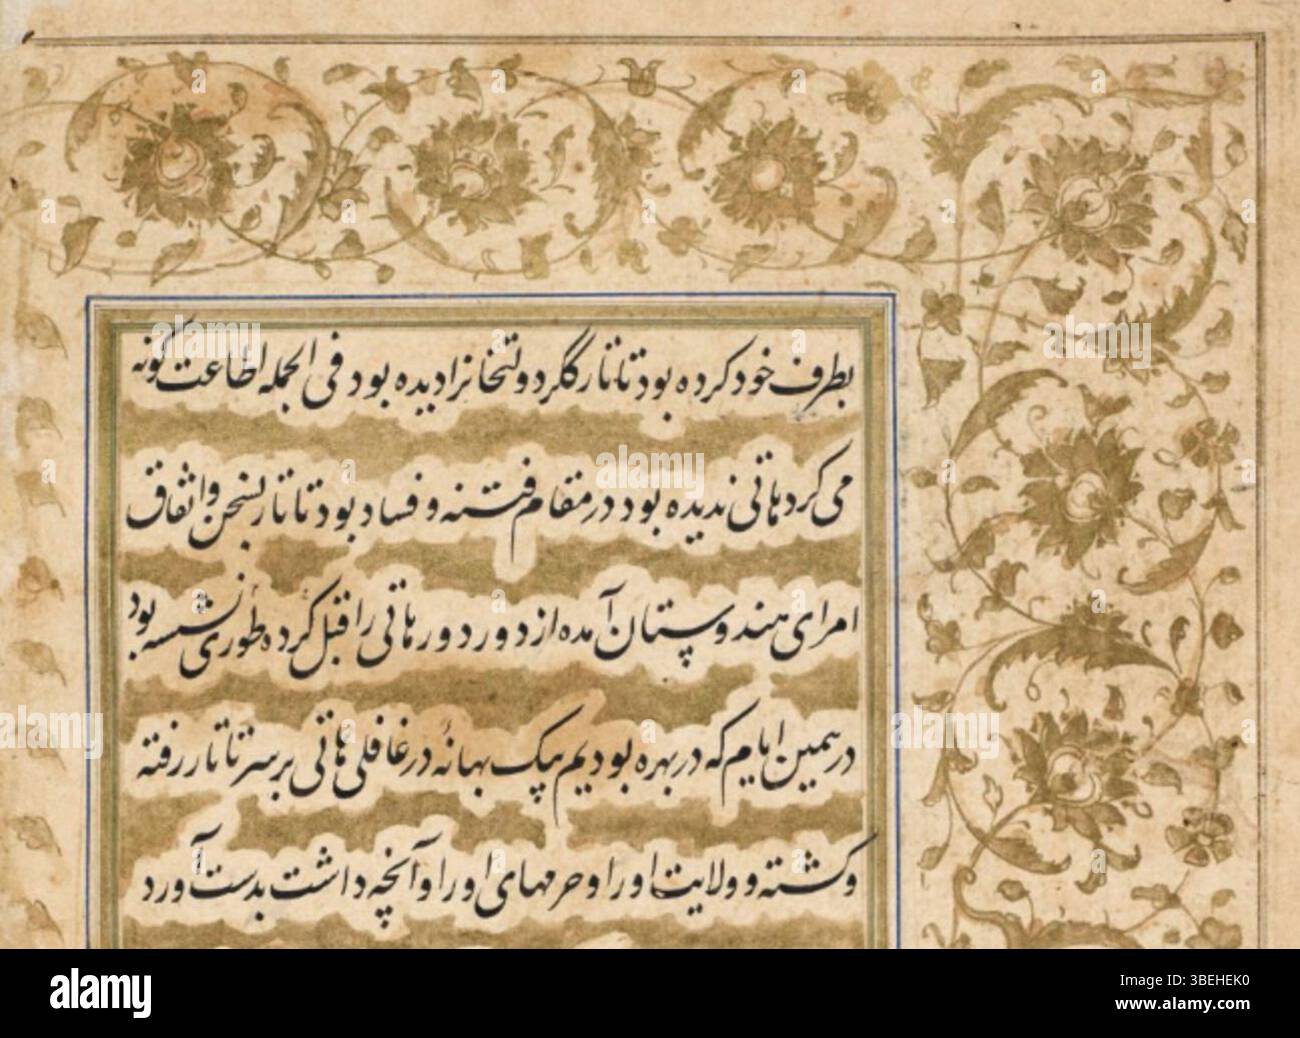 بطرف خود کرده بود تاتار گلگر دولتخانرا دیده بود فی الجمله اطاعت گونه
می کرد هاتی ندیده بود در مقام فتنه و فساد بود تاتار بسخن واتفاق
امرای هندوستان آمده از دور دور هاتی را قبل کرده طوری نشسته بود
در همین ایام که در بهره بودیم بیک بهانهٔ در غافلی هاتی بر سر تاتار رفته
وکشته و ولایت اورا و حرمهای اورا و آنچه داشت بدست آورد
alamy
Image ID: 3BEHEK0
www.alamy.com